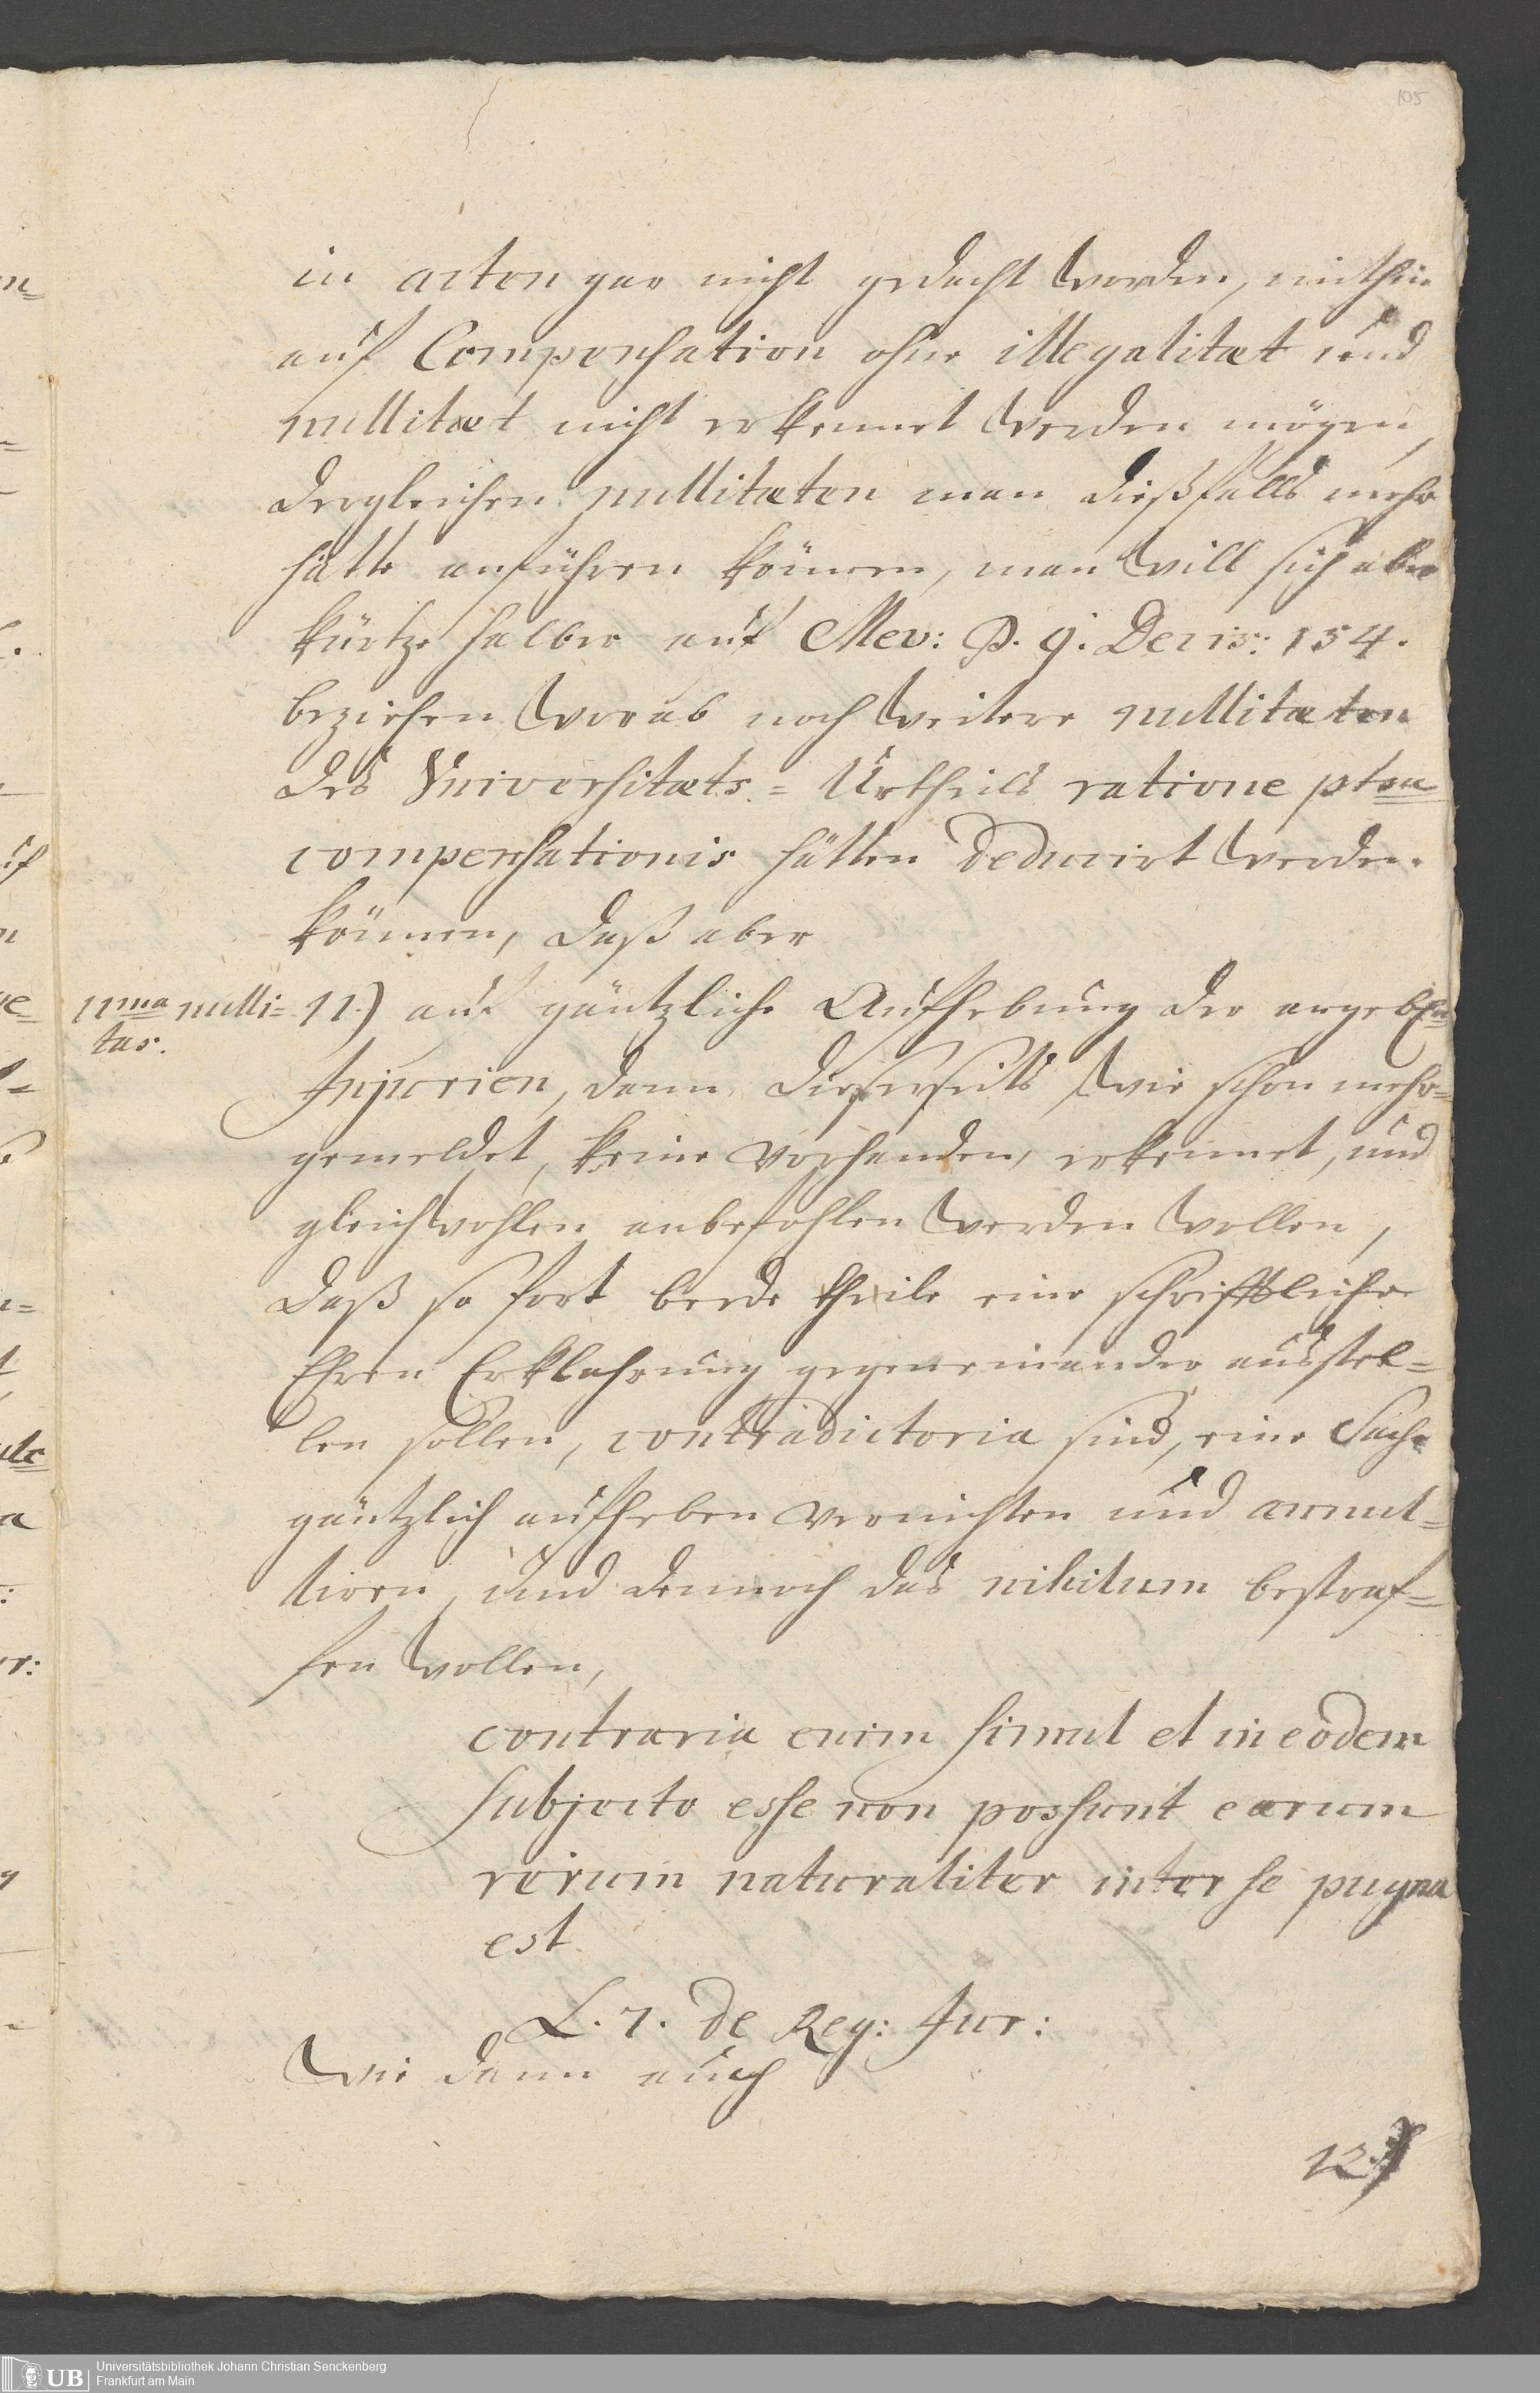 105
in acten gar nicht gedacht worden, mithin
auf Compensation ohne illegalitæt und
nullitæt nicht erkennet werden mögen,
dergleichen nullitæten man dießfalls mehr
hätte anführen können, man will sich aber
kürtze halber auf Mev: P. 9. Decis: 154.
beziehen worab noch weitere nullitæten
des Universitæts-Urtheils ratione pten
compensationis hätten deducirt werden
können, daß aber
11ma nulli=
tas.
11.) auf gäntzliche Aufhebung der angebl
Injurien, denn dießerseits, wie schon mehr=
gemeldet, keine vorhanden, erkennet, und
gleichwohlen anbefohlen werden wollen,
daß so fort beede theile eine schrifftliche
Ehren Erklährung gegeneinander ausstel=
len sollen, contradictoria sind, eine Sache
gäntzlich aufheben vernichten und annul=
liren, und dennoch das nihilum bestraf=
fen wollen,
contraria enim simul et in eodem
subjecto esse non possunt earum
rerum naturaliter inter se pugna
est
L. 7. de Reg: Jur:
Wie dann auch
12.)
UB Universitätsbibliothek Johann Christian Senckenberg
Frankfurt am Main